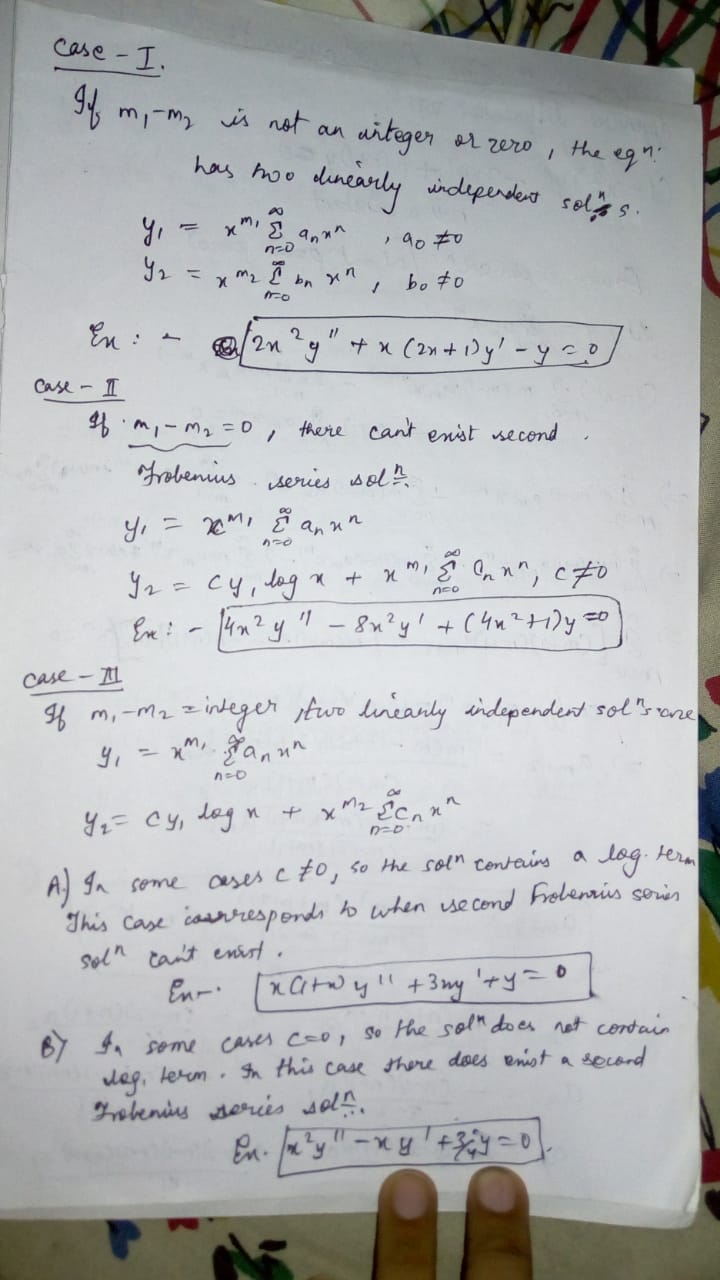 Case - I.
If m₁-m₂ is not an integer or zero, the eqn.
has two linearly independent solⁿs.
y₁ = x^m₁ ∞Σn=0 aₙxⁿ , a₀ ≠ 0
y₂ = x^m₂ ∞Σn=0 bₙ xⁿ , b₀ ≠ 0
Ex : - 2x²y'' + x(2x+1)y' - y = 0
Case - II
If m₁-m₂ = 0, there can't exist second
Frobenius series solⁿ.
y₁ = x^m₁ ∞Σn=0 aₙxⁿ
y₂ = cy₁ log x + x^m₁ ∞Σn=0 cₙxⁿ, c≠0
Ex : - 4x²y'' - 8x²y' + (4x²+1)y = 0
Case - III
If m₁-m₂ = integer, two linearly independent solⁿs are
y₁ = x^m₁ ∞Σn=0 aₙxⁿ
y₂ = cy₁ log x + x^m₂ ∞Σn=0 cₙxⁿ
A) In some cases c≠0, so the solⁿ contains a log. term
This case corresponds to when second Frobenius series
solⁿ can't exist.
Ex-. x(1+x)y'' + 3xy' + y = 0
B) In some cases c=0, so the solⁿ does not contain
log. term. In this case there does exist a second
Frobenius series solⁿ.
Ex. x²y'' - xy' + 3/4 y = 0.